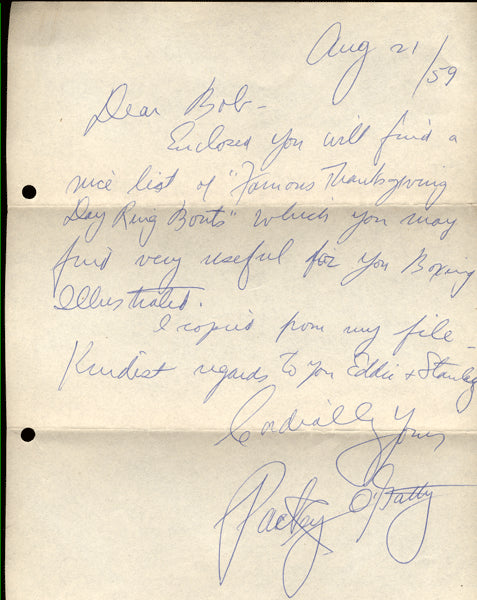 Aug 21/59
Dear Bob-
Enclosed you will find a
nice list of "Famous Thanksgiving
Day Ring Bouts" which you may
find very useful for you Boxing
Illustrated.
I copied from my file-
Kindist regards to you Eddie + Stanley
Cordially Yours
Packey O'Gatty